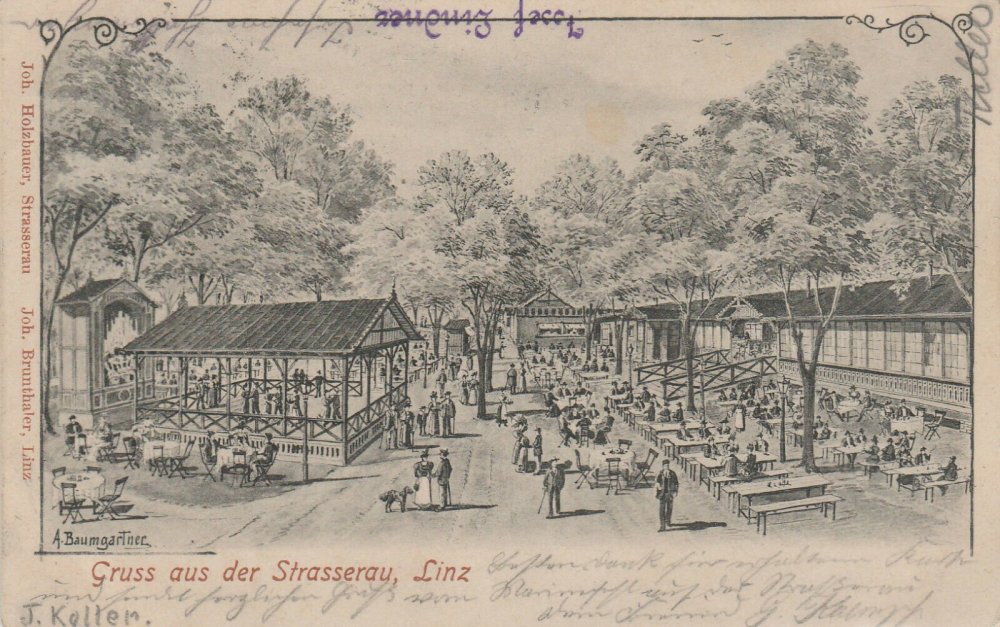 Josef Lindner
Joh. Holzbauer, Strasserau Joh. Brunthaler, Linz
A. Baumgartner
Gruss aus der Strasserau, Linz
Besten Dank für erhaltene Karte
und sendet herzlichen Gruß vom auf der Straßerau
dein Freund G.
J. Koller.